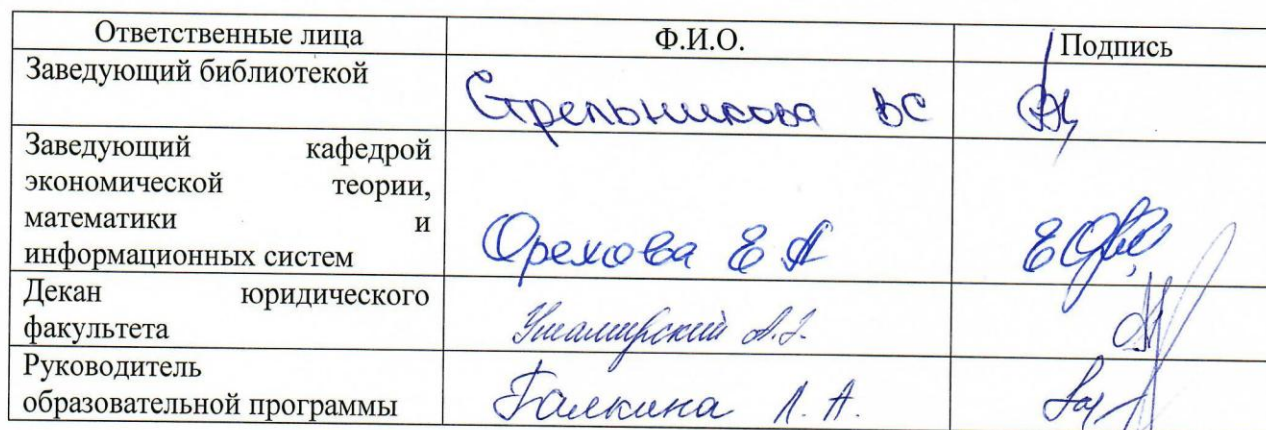 Ответственные лица Ф.И.О. Подпись
Заведующий библиотекой
Стрельникова ВС
Заведующий кафедрой
экономической теории,
математики и
информационных систем
Орехова Е А
Декан юридического
факультета
Ушамирский А.Э.
Руководитель
образовательной программы
Галкина Л. А.